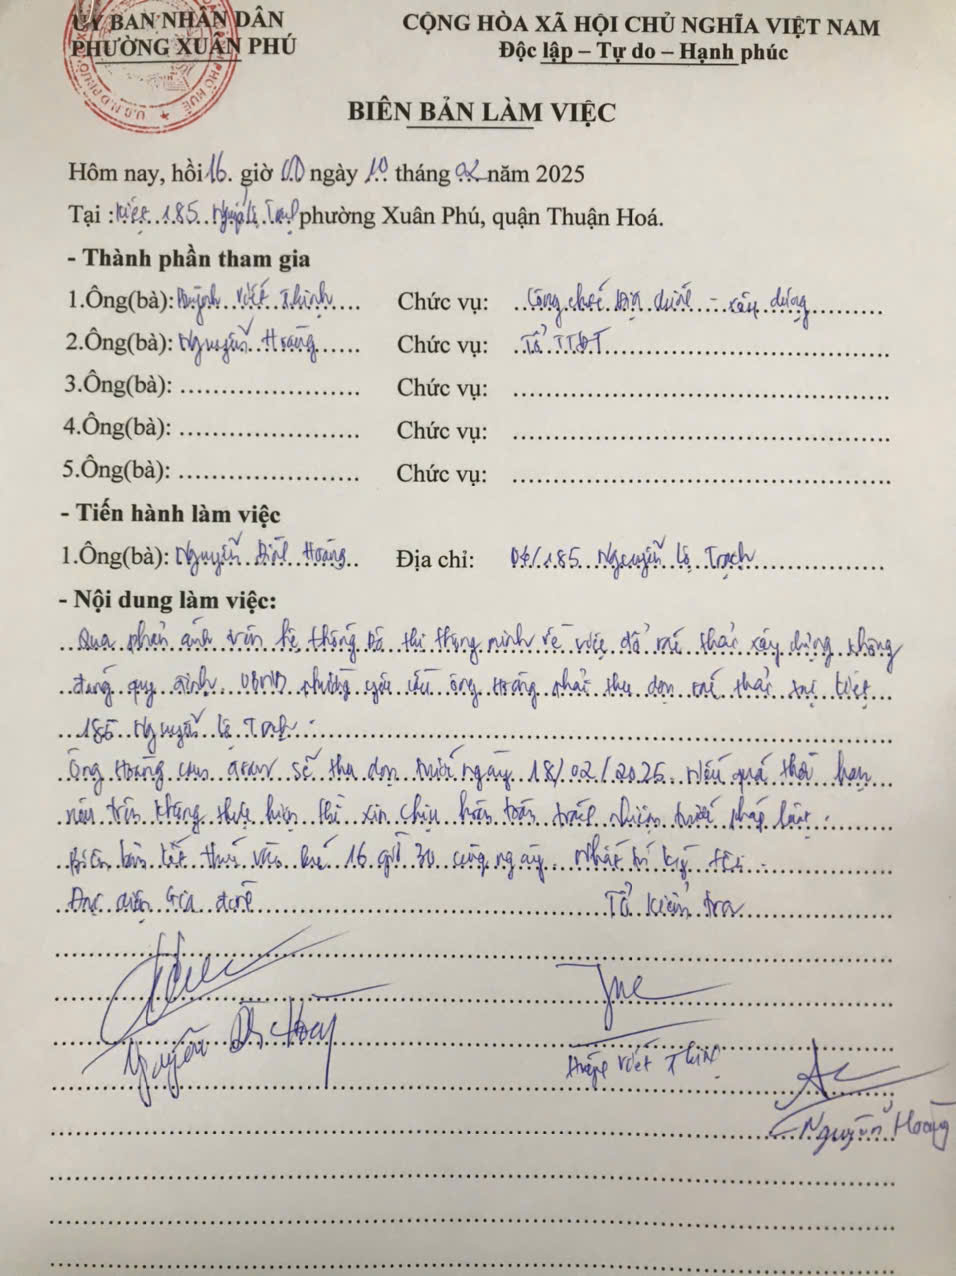 ỦY BAN NHÂN DÂN
PHƯỜNG XUÂN PHÚ
CỘNG HÒA XÃ HỘI CHỦ NGHĨA VIỆT NAM
Độc lập – Tự do – Hạnh phúc
BIÊN BẢN LÀM VIỆC
Hôm nay, hồi 16 giờ 00 ngày 10 tháng 02 năm 2025
Tại : Kiệt 185 Nguyễn Lộ Trạch phường Xuân Phú, quận Thuận Hoá.
- Thành phần tham gia
1.Ông(bà): Viết Thịnh Chức vụ: Công chức địa chính - xây dựng
2.Ông(bà): Nguyễn Hoàng Chức vụ: Tổ TTĐT
3.Ông(bà): Chức vụ:
4.Ông(bà): Chức vụ:
5.Ông(bà): Chức vụ:
- Tiến hành làm việc
1.Ông(bà): Nguyễn Đình Hoàng Địa chỉ: 04/185 Nguyễn Lộ Trạch
- Nội dung làm việc:
Qua phản ánh trên hệ thống Đô thị thông minh về việc đổ rác thải xây dựng không
đúng quy định. UBND phường yêu cầu ông Hoàng phải thu dọn rác thải tại kiệt
185 Nguyễn Lộ Trạch.
Ông Hoàng cam đoan sẽ thu dọn trước ngày 18/02/2025. Nếu quá thời hạn
nêu trên không thực hiện thì xin chịu hoàn toàn trách nhiệm trước pháp luật.
Biên bản kết thúc vào lúc 16 giờ 30 cùng ngày. Nhất trí ký tên.
Đại diện Gia đình Tổ kiểm tra
Nguyễn Hoàng